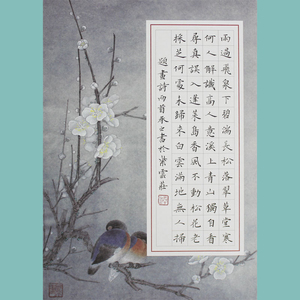 雨過飛泉下碧湍長松落翠草堂寒
何人解識高人意溪上青山獨自看
尋真誤入蓬萊島香風不動松花老
採芝何處未歸來白雲滿地無人掃
題畫詩兩首之書於紫雲莊